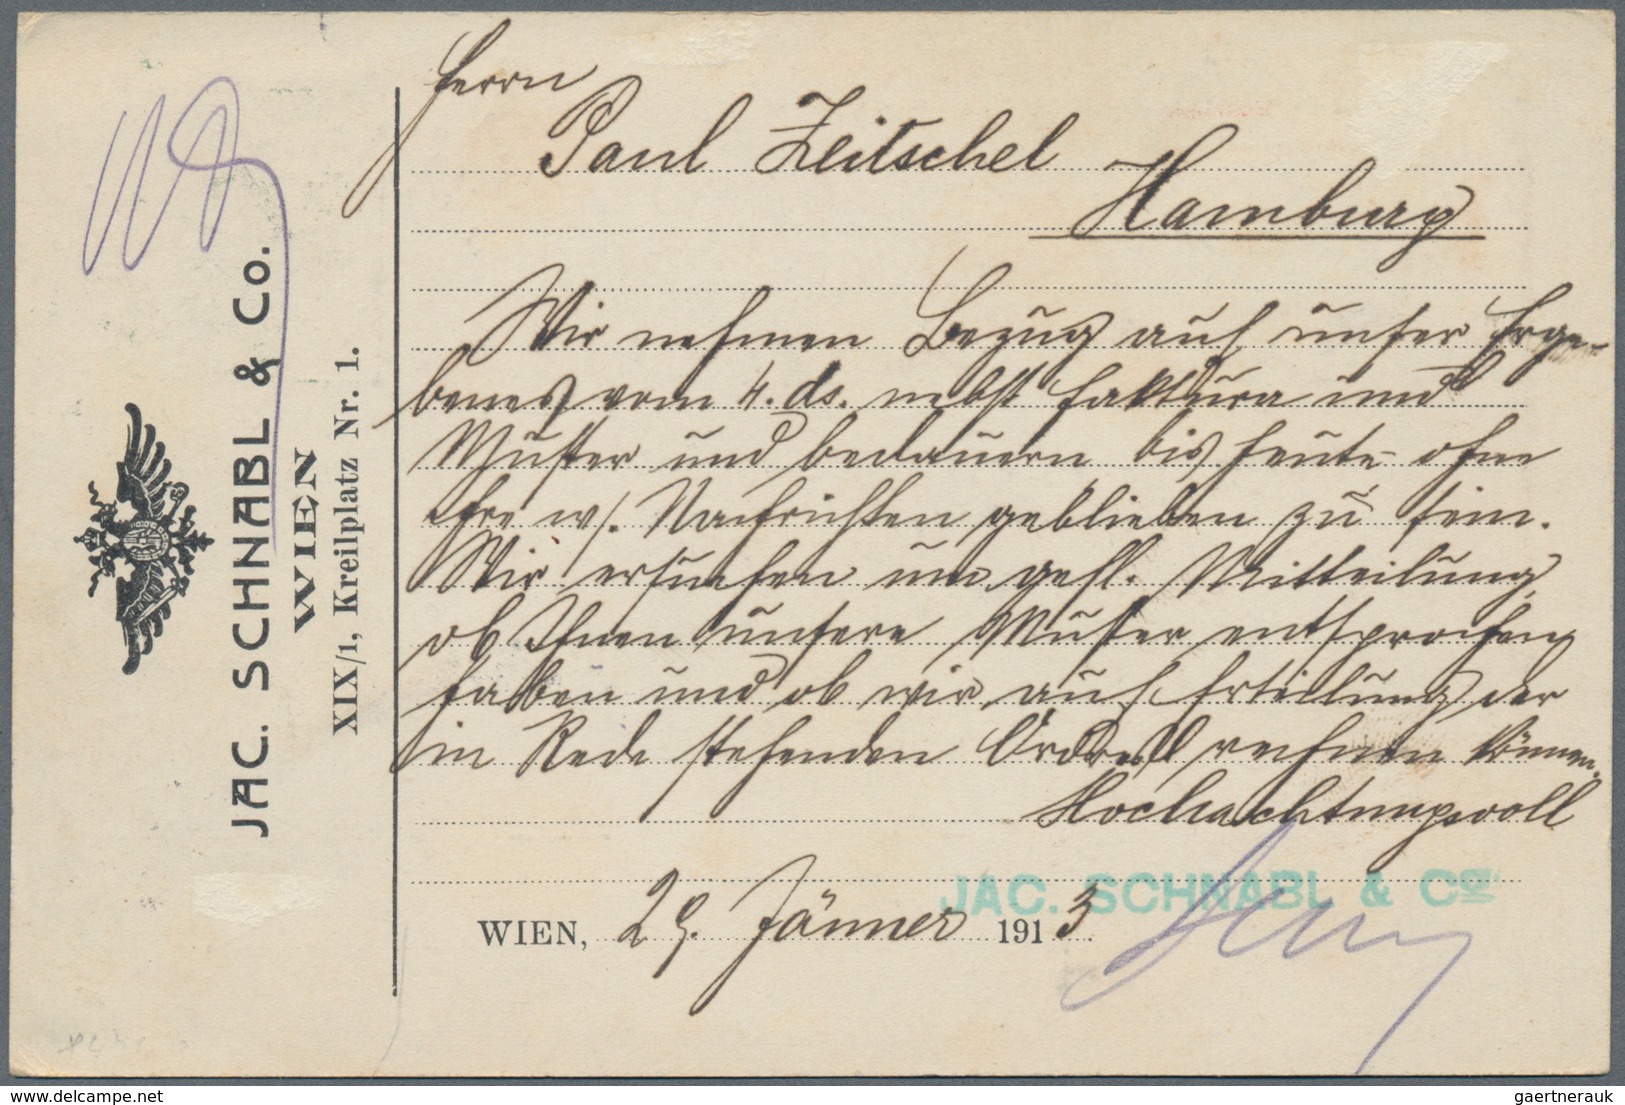 JAC. SCHNABL & Co.
WIEN
XIX/1, Kreilplatz Nr. 1.
Herrn
Paul Zeitschel
Hamburg
Wir nehmen Bezug auf unser Erge-
benes vom 4. ds. nebst Faktura und
Muster und bedauern bis heute ohne
Ihre w/. Nachrichten geblieben zu sein.
Wir ersuchen um gefl. Mitteilung,
ob Ihnen unsere Muster entsprochen
haben und ob wir auf Erteilung der
in Rede stehenden Ordres rechnen können.
Hochachtungsvoll
JAC. SCHNABL & Co
WIEN, 29. Jänner 1913
gaertnerauk